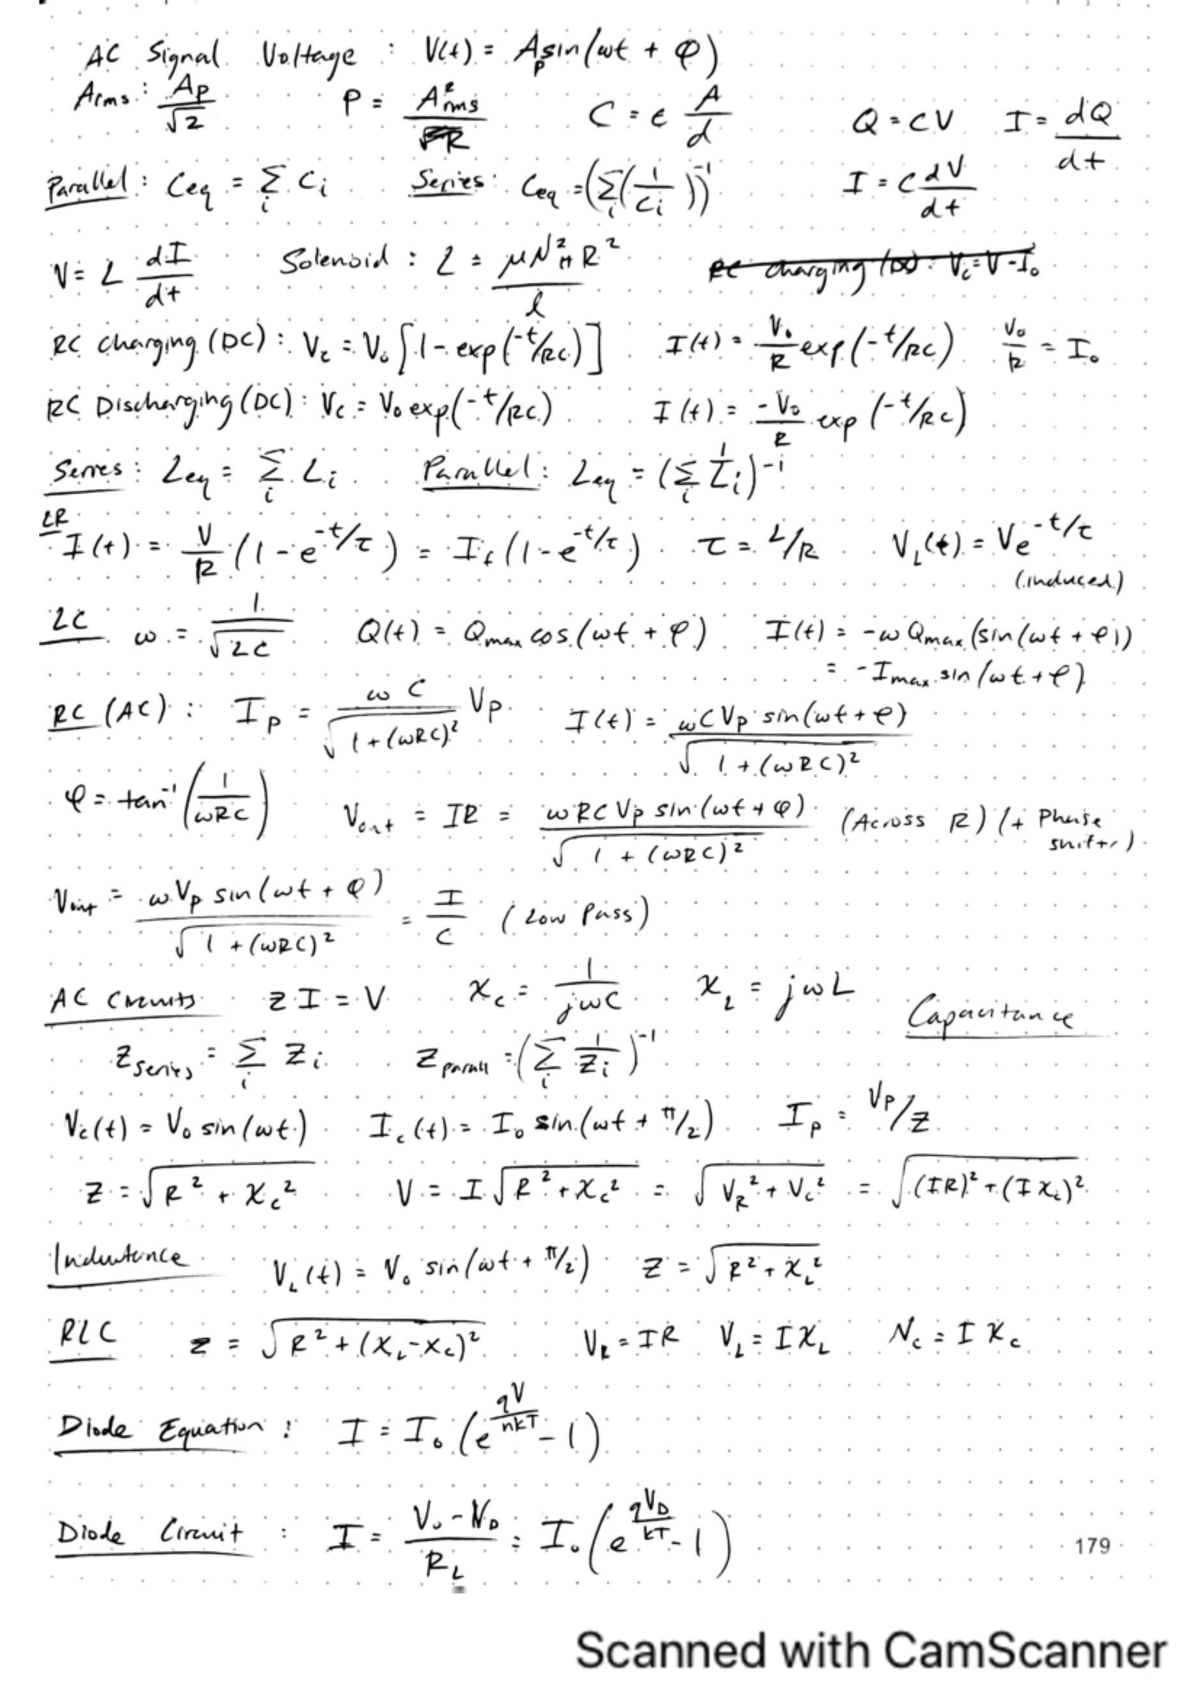 AC Signal Voltage : V(t) = A_p sin(ωt + φ)
Arms: A_p/√2   P = A²rms/R   C = ε A/d   Q = CV   I = dQ/dt
Parallel: Ceq = Σ_i C_i   Series: Ceq = (Σ_i (1/C_i))^-1   I = C dV/dt
V = L dI/dt   Solenoid : L = μN²πR²/l   RC charging (DC): Vc = V - I₀
RC charging (DC): Vc = V₀[1 - exp(-t/RC)]   I(t) = V₀/R exp(-t/RC)   V₀/R = I₀
RC Discharging (DC): Vc = V₀ exp(-t/RC)   I(t) = -V₀/R exp(-t/RC)
Series: Leq = Σ_i L_i   Parallel: Leq = (Σ_i 1/L_i)^-1
LR I(t) = V/R (1 - e^-t/τ) = I_f (1 - e^-t/τ)   τ = L/R   V_L(t) = Ve^-t/τ
(induced)
LC ω = 1/√LC   Q(t) = Qmax cos(ωt + φ)   I(t) = -ωQmax(sin(ωt + φ))
= -Imax sin(ωt + φ)
RC (AC): I_p = ωC/√1+(ωRC)² V_p   I(t) = ωCV_p sin(ωt + φ)/√1+(ωRC)²
φ = tan^-1(1/ωRC)   Vout = IR = ωRCV_p sin(ωt + φ)/√1+(ωRC)² (Across R) (+ Phase shifter)
Vout = ωV_p sin(ωt + φ)/√1+(ωRC)² = I/C (Low Pass)
AC Circuits   ZI = V   X_c = 1/jωC   X_L = jωL   Capacitance
Zseries = Σ_i Z_i   Zparall = (Σ_i 1/Z_i)^-1
Vc(t) = V₀ sin(ωt)   Ic(t) = I₀ sin(ωt + π/2)   I_p = V_p/Z
Z = √R² + Xc²   V = I√R² + Xc² = √V_R² + Vc² = √(IR)² + (IXc)²
Inductance   V_L(t) = V₀ sin(ωt + π/2)   Z = √R² + X_L²
RLC   Z = √R² + (X_L - X_c)²   V_R = IR   V_L = IX_L   V_c = IX_c
Diode Equation : I = I₀(e^qV/nkT - 1)
Diode Circuit : I = V₀ - V_D/R_L = I₀(e^qV_D/kT - 1)
179
Scanned with CamScanner